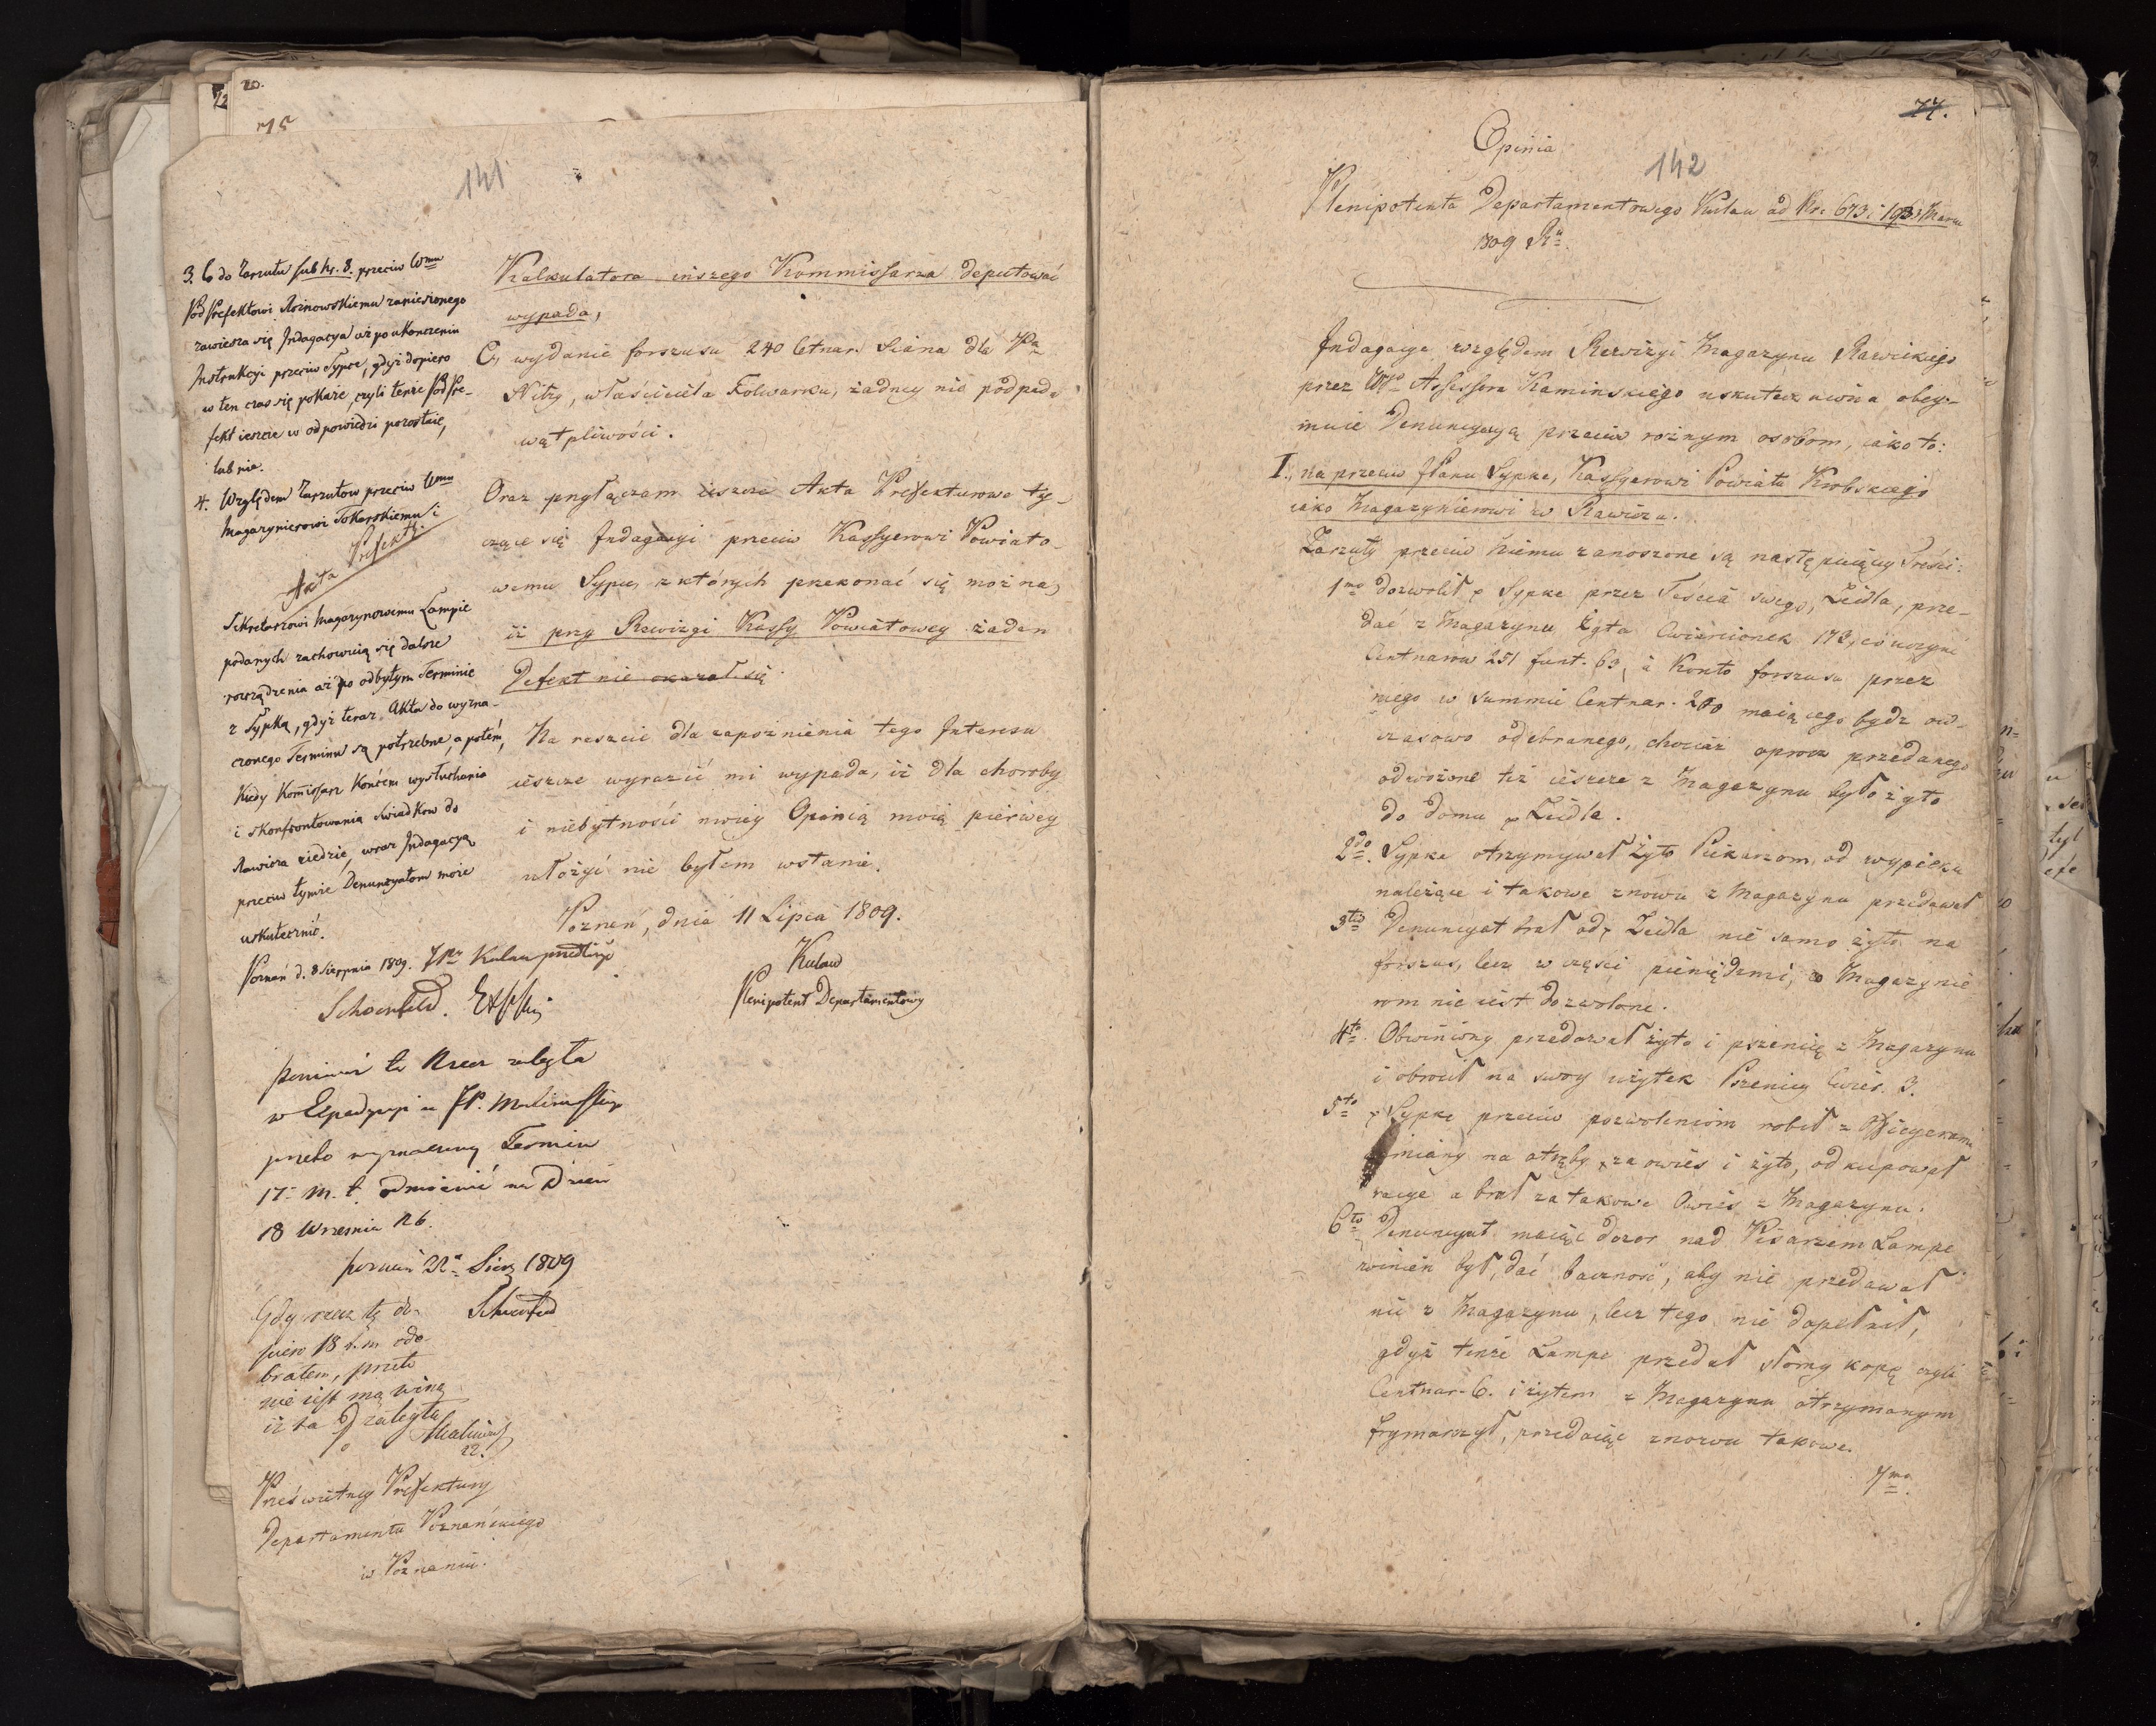 20.
75
141
3. Co do Zarzutu sub Nr. 8. przeciw Wmu
PodPrefektowi Rosnowskiemu zaniesionego
zawiesza się Indagacya aż po ukonczeniu
Instrukcyi przeciw Sypce, gdyż dopiero
w ten czas się pokaże, czyli tenże PodPre-
fekt ieszcze w odpowiedzi pozostaie,
lub nie.
4. Względem Zarzutow przeciw Wmu
Magazynierowi Tokarskiemu i
Akta Prefekt.
Sekretarzowi Magazynowemu Lampie
podanych zachowuią się dalsze
rozrządzenia aż po odbytym Terminie
z Sypką, gdyż teraz Akta do wyzna-
czonego Terminu są potrzebne, a potém,
Kiedy Komissarz Końcem wysłuchania
i skonfrontowania swiadkow do
Rawicza ziedzie, wraz Indagacyą
przeciw tymże Denuncyatom może
uskutecznić.
Poznań d. 8 Sierpnia 1809.
Schoenfeld.
Ponieważ ta Rzecz zaległa
w Expedycyi u JP.
przeto wyznaczony Termin
17. m. t. odmienić na Dzień
18 Wrzesnia r. b.
poznań 22 Sierp 1809
Schoenfeld
Gdy rzecz tę do-
piero 18 t. m. ode-
brałem, przeto
nie iest mą winą
iż ta zaległa
22.
Prześwietney Prefektury
Departamentu Poznańskiego
w Poznaniu.
Kalkulatora inszego Kommissarza deputować
wypada,
C, wydanie forszusu 240 Cetnar. Siana dla Pa
Nitzy, właściciela Folwarku, żadney nie podpada
wątpliwości.
Oraz przyłączam ieszcze Akta Prefekturowe ty-
czące się Indagacyi przeciw Kassyerowi Powiato-
wemu Sypce, z których przekonać się można,
iż przy Rewizyi Kassy Powiatowey żaden
Defekt nie okazał się.
Na reszcie dla zapoźnienia tego Interesu
ieszcze wyrazić mi wypada, iż dla choroby
i niebytności moiey Opinią moią pierwey
ułożyć nie byłem wstanie.
Poznań, dnia 11 Lipca 1809.
Kulau
Plenipotent Departamentowy
77.
Opinia
142
Plenipotenta Departamentowego Kulau ad Nr. 673 i
1809 R.
Indagacya względem Rewizyi Magazynu Rawickiego
przez W. Assessora Kaminskiego uskuteczniona obey-
muie Denuncyacyą przeciw rożnym osobom, iako to:
I., na przeciw JPanu Sypke, Kassyerowi Powiatu Krobskiego
iako Magazynierowi w Rawiczu.
Zarzuty przeciw niemu zanoszone są następuiącey Treści:
1mo dozwolił P. Sypke przez Teścia swego, Zeidla, prze-
dać z Magazynu Żyta Cwiercionek 173, co uczyni
Centnarow 251 funt. 63, à Konto forszusu przez
niego w summie Centnar. 200 maiącego bydz ow-
czasowo odebranego, chociaż oprocz przedanego
odwożone też ieszcze z Magazynu było żyto
do domu P. Zeidla.
2do. Sypke otrzymywał Żyto Piekarzom od wypieku
należące i takowe znowu z Magazynu przedawał
3tio Denuncyat brał od P. Zeidla nie samo żyto na
forszus, lecz w części pieniędzmi, co Magazynie-
rom nie iest dozwolone.
4to. Obwiniony przedawał żyto i pszenicę z Magazynu
i obrocił na swoy użytek Pszenicy Cwierć. 3.
5to P. Sypke przeciw pozwoleniom robił z Officyerami
zmiany na otręby, za owies i żyto, odkupował
racye a brał za takowe Owies z Magazynu.
6to Denuncyat maiąc dozor nad Pisarzem Lampe
winien był, dać baczność, aby nie przedawał
nic z Magazynu, lecz tego nie dopełnił,
gdyż tenże Lampe przedał słomy kopę czyli
Centnar. 6. i żytem z Magazynu otrzymanym
frymarczył, przedaiąc znowu takowe.
7mo.